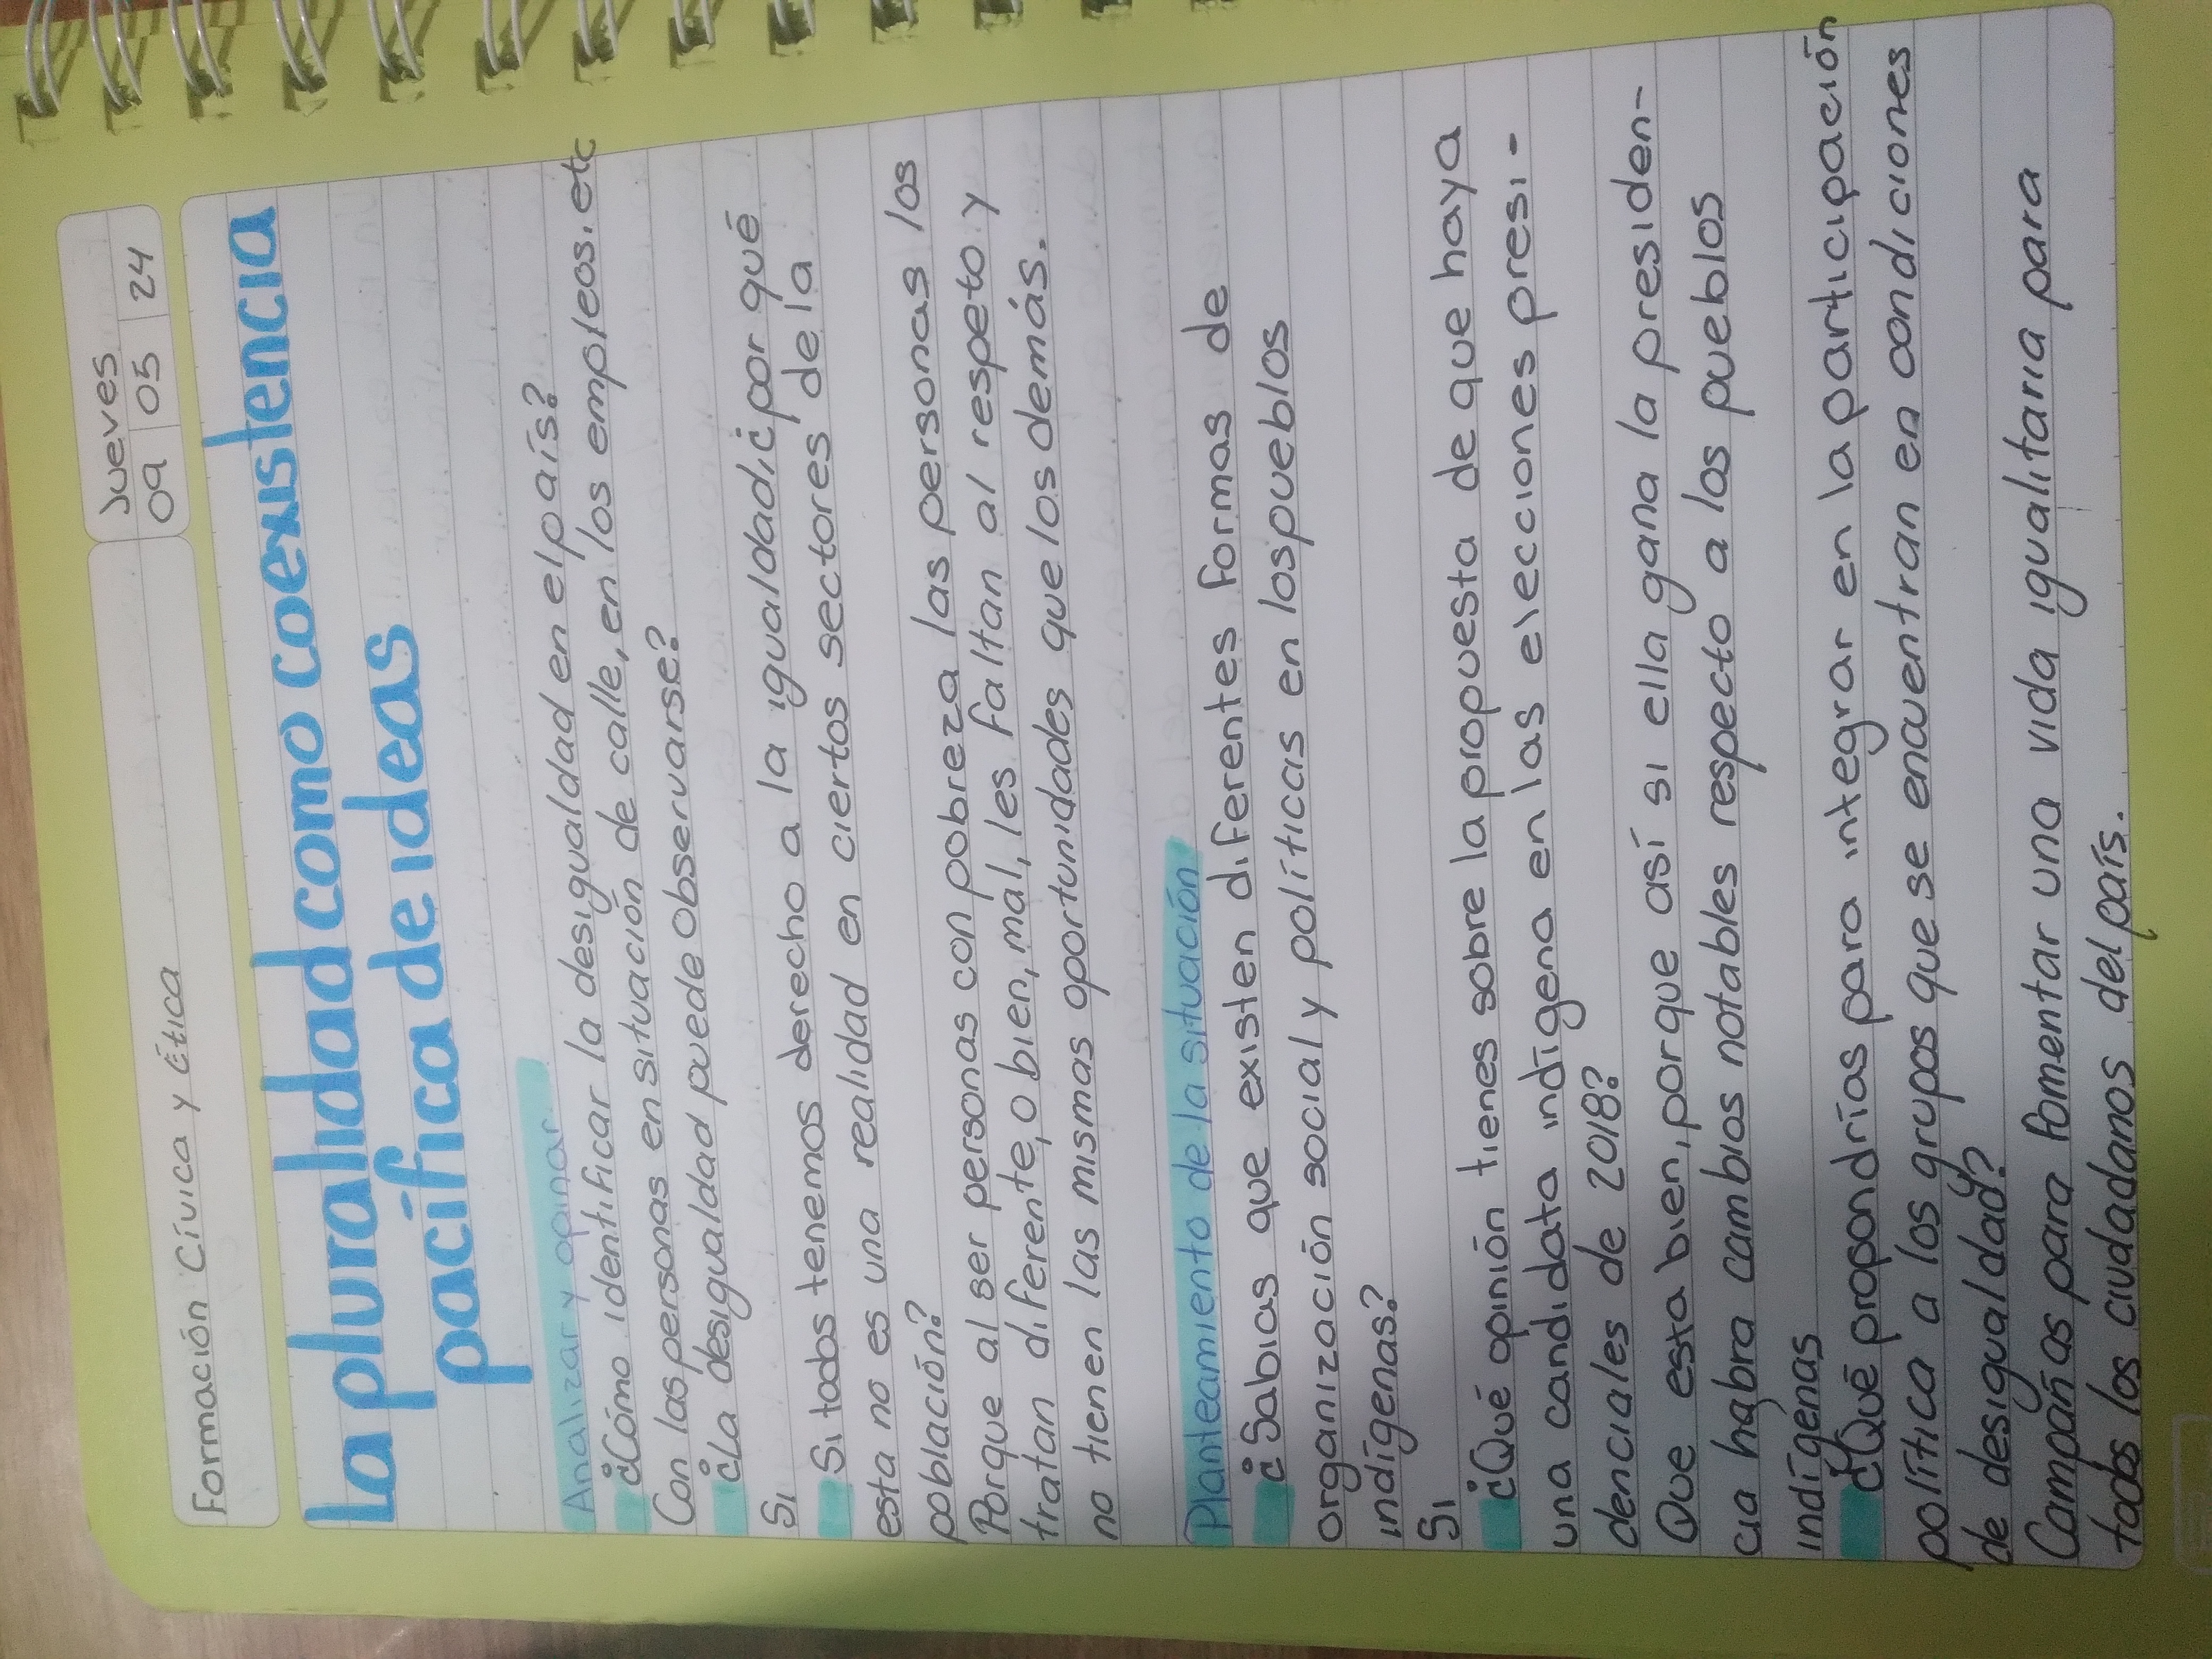 Formación Cívica y Ética
Jueves
09 05 24
La pluralidad como coexistencia
pacífica de ideas
Analizar y opinar
¿Cómo identificar la desigualdad en el país?
Con las personas en situación de calle, en los empleos, etc
¿La desigualdad puede observarse?
Si
Si todos tenemos derecho a la igualdad ¿por qué
esta no es una realidad en ciertos sectores de la
población?
Porque al ser personas con pobreza las personas los
tratan diferente, o bien, mal, les faltan al respeto y
no tienen las mismas oportunidades que los demás.
Planteamiento de la situación
¿Sabias que existen diferentes formas de
organización social y políticas en los pueblos
indígenas?
Si
¿Qué opinión tienes sobre la propuesta de que haya
una candidata indígena en las elecciones presi-
denciales de 2018?
Que esta bien, porque así si ella gana la presiden-
cia habra cambios notables respecto a los pueblos
indígenas
¿Qué propondrías para integrar en la participación
política a los grupos que se encuentran en condiciones
de desigualdad?
Campañas para fomentar una vida igualitaria para
todos los ciudadanos del país.